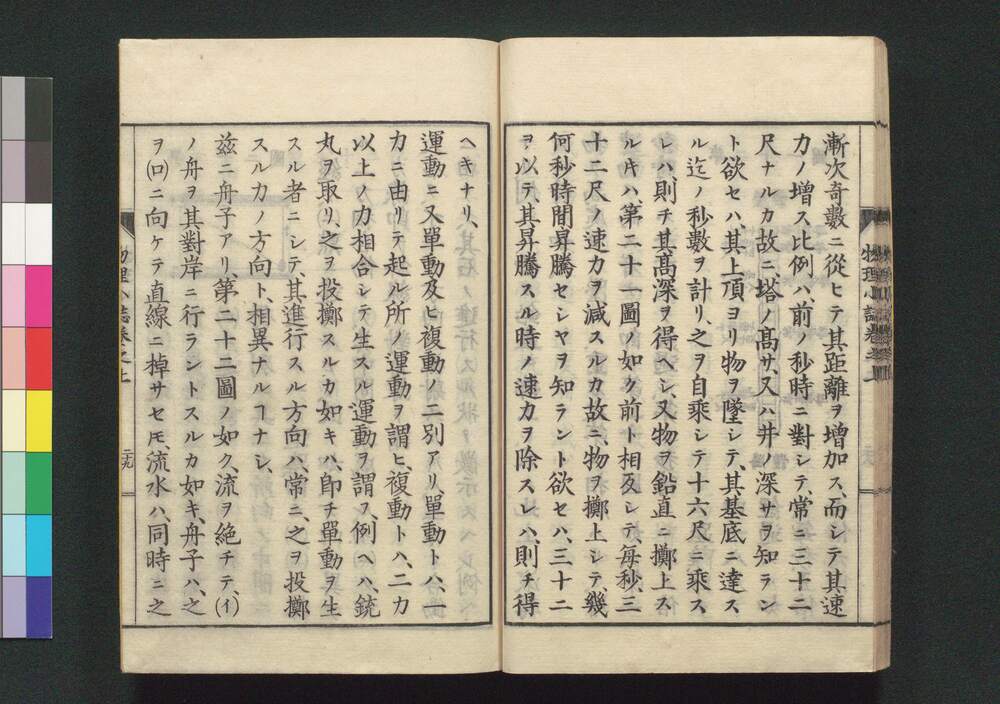 漸次奇數ニ從ヒテ其距離ヲ増加ス、而シテ其速
力ノ増ス比例ハ、前ノ秒時ニ對シテ、常ニ三十二
尺ナルカ故ニ、塔ノ髙サ、又ハ井ノ深サヲ知ラン
ト欲セハ、其上頂ヨリ物ヲ墜シテ、其基底ニ達ス
ル迄ノ秒數ヲ計リ、之ヲ自乘シテ十六尺ニ乘ス
レハ、則チ其髙深ヲ得ヘシ、又物ヲ鉛直ニ擲上ス
ルキハ、第二十一圖ノ如ク、前ト相反シテ毎秒、三
十二尺ノ速力ヲ減スルカ故ニ、物ヲ擲上シテ、幾
何秒時間昇騰セシヤヲ知ラント欲セハ、三十二
ヲ以テ、其昇騰スル時ノ速力ヲ除スレハ、則チ得
物理小誌卷之二
ヘキナリ、
運動ニ又單動及ヒ複動ノ二別アリ、單動トハ、一
力ニ由リテ起ル所ノ運動ヲ謂ヒ、複動トハ、二力
以上ノ力相合シテ生スル運動ヲ謂フ、例ヘハ、銃
丸ヲ取リ、之ヲ投擲スルカ如キハ、即チ單動ヲ生
スル者ニシテ、其進行スル方向ハ、常ニ、之ヲ投擲
スル力ノ方向ト、相異ナルヿナシ、
茲ニ舟子アリ、第二十二圖ノ如ク、流ヲ絶チテ、(イ)
ノ舟ヲ其對岸ニ行ラントスルカ如キ、舟子ハ、之
ヲ(ロ)ニ向ケテ直線ニ棹サセ𪜈、流水ハ、同時ニ之